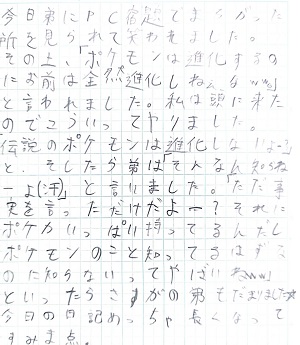 今日弟にPC宿題でまちがった
所を見られて笑われました。
その上、「ポケモンは進化するの
にお前は全然進化しねぇなww」
と言われました。私は頭に来た
のでこういってヤリました。
「伝説のポケモンは進化しないよー」
と、そしたら弟は「そんなん知らね
ーよ(汗)」と言いました。「ただ事
実を言っただけだよー？それに
ポケカいっぱい持ってるんだし
ポケモンのこと知ってるはずな
のに知らないってやばいねww」
といったらさすがの弟もだまりましたw
今日の日記めっちゃ長くなって
すみま点。